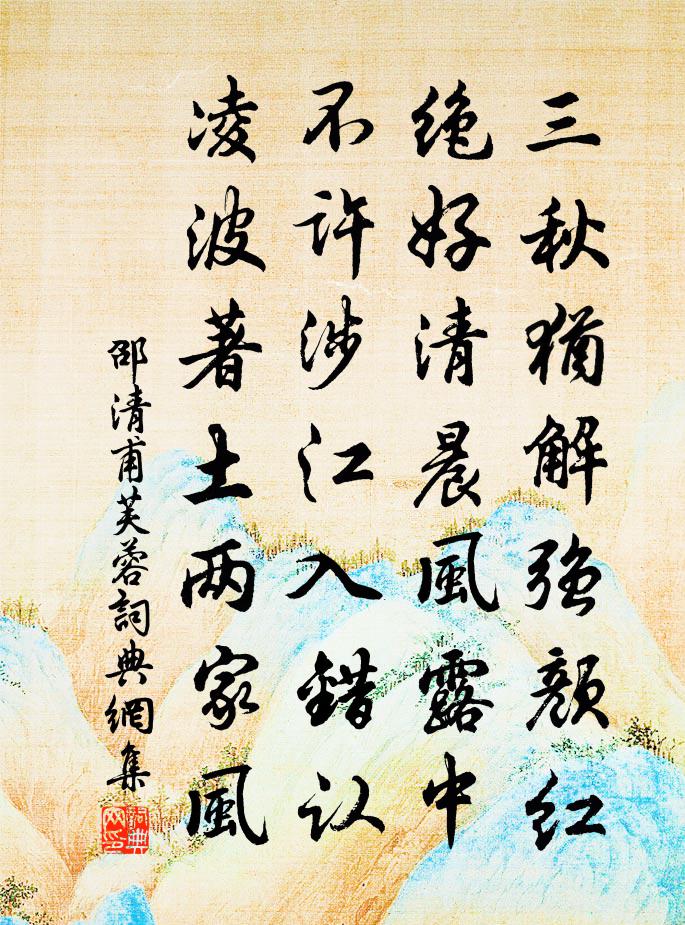 三秋犹解强颜红
绝好清晨風露中
不许涉江入错认
凌波著土两家風
邵清甫芙蓉詞典網集
詞典網印